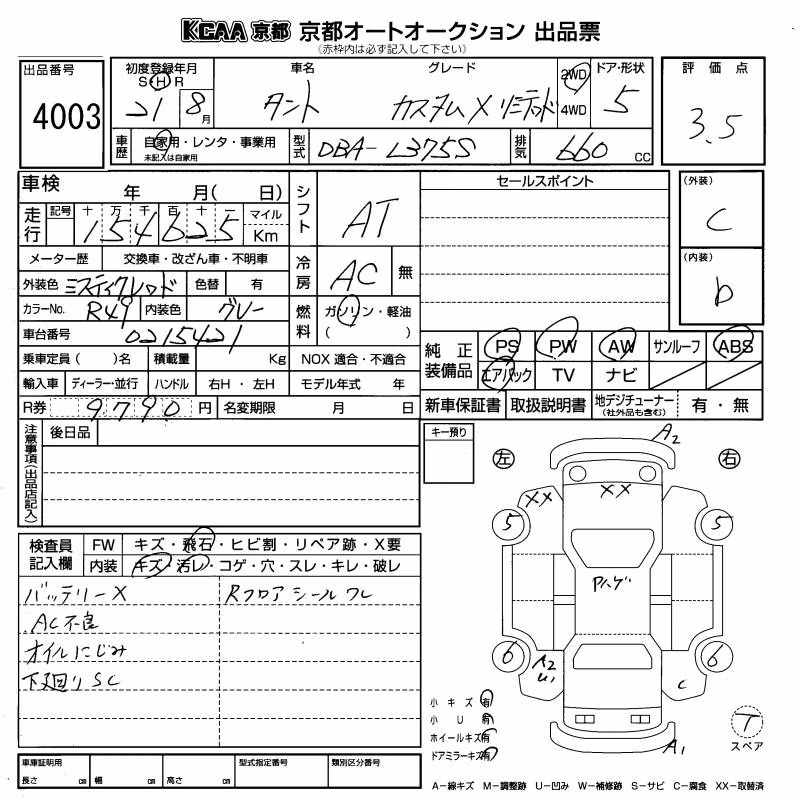 KCAA 京都 京都オートオークション 出品票
(赤枠内は必ず記入して下さい)
出品番号
4003
初度登録年月
S H R
21 8 月
車名
タント
グレード
カスタム X リミテッド
2WD
4WD
ドア・形状
5
評価点
3.5
車歴
自家用・レンタ・事業用
未記入は自家用
型式
DBA-L375S
排気
660 cc
車検 年 月( 日)
走行
記号 十 万 千 百 十 一
154625
マイル
Km
シフト
AT
メーター歴 交換車・改ざん車・不明車
冷房
AC 無
外装色 ミスティクレッド 色替 有
カラーNo. R49 内装色 グレー
燃料
ガソリン・軽油
( )
車台番号 0215421
乗車定員( )名 積載量 Kg NOX 適合・不適合
輸入車 ディーラー・並行 ハンドル 右H・左H モデル年式 年
R券 9790 円 名変期限 月 日
セールスポイント
(外装)
C
(内装)
b
純正装備品
PS PW AW サンルーフ ABS
エアバック TV ナビ
新車保証書 取扱説明書 地デジチューナー(社外品も含む) 有・無
注意事項(出品店記入)
後日品
キー預り
左
右
A2
XX
XX
5
5
Pハゲ
6
6
A2
U1
C
A1
T
スペア
検査員記入欄
FW キズ・飛石・ヒビ割・リペア跡・X要
内装 キズ・汚レ・コゲ・穴・スレ・キレ・破レ
バッテリーX
Rフロアシールワレ
AC不良
オイルにじみ
下廻りSC
小キズ 有
小U 有
ホイールキズ 有
ドアミラーキズ 有
車庫証明用
長さ cm 幅 cm 高さ cm
型式指定番号
類別区分番号
A-線キズ M-調整跡 U-凹み W-補修跡 S-サビ C-腐食 XX-取替済